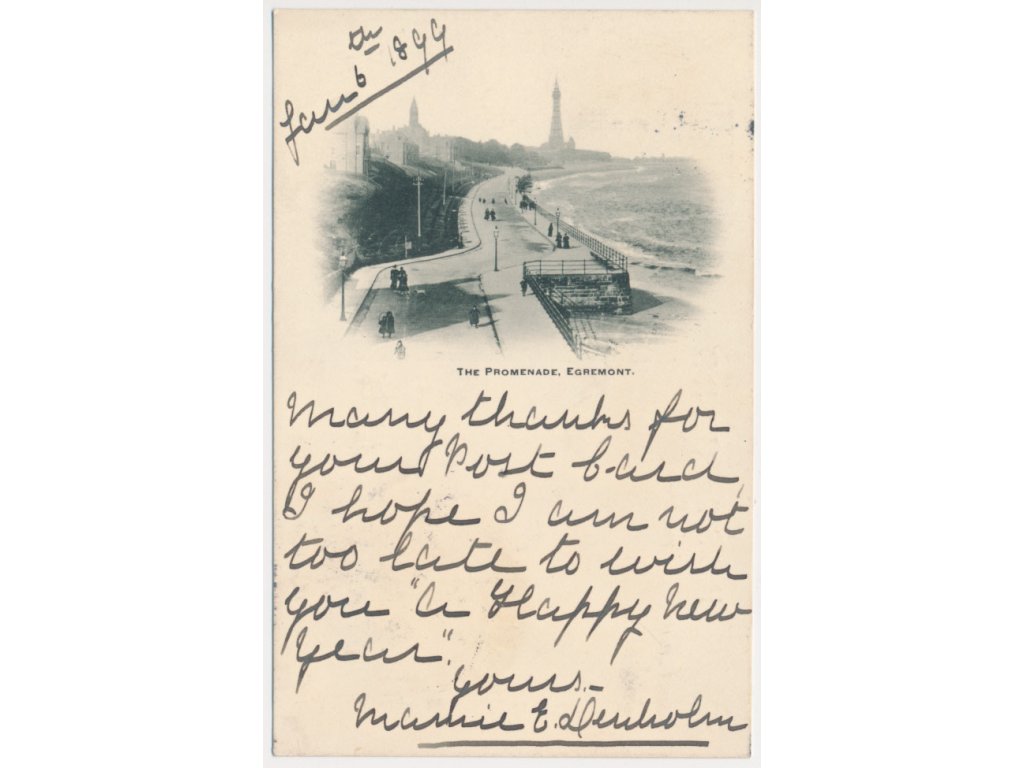 Jan 6th 1899
THE PROMENADE, EGREMONT.
Many thanks for
your Post Card,
I hope I am not
too late to wish
you "A Happy New
Year".
Yours-
Mamie E. Denholm